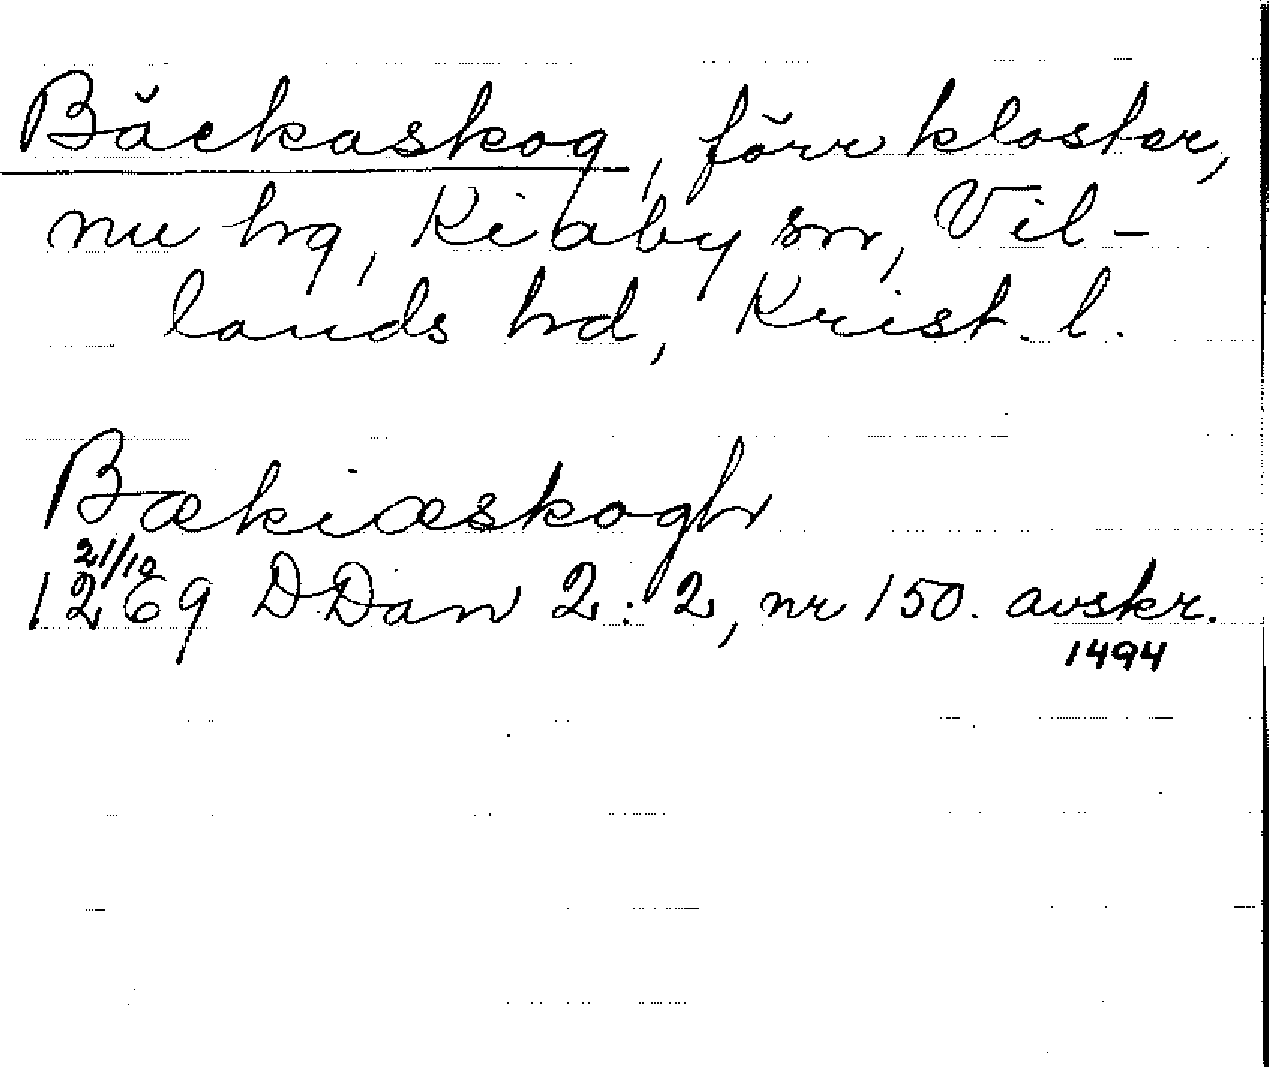 Bäckaskog, förr kloster,
nu hg, Kiaby sn, Vil-
lands hd, Krist. l.
Bækiæskogh
21/12
1269 DDan 2:2, nr 150. avskr.
1494